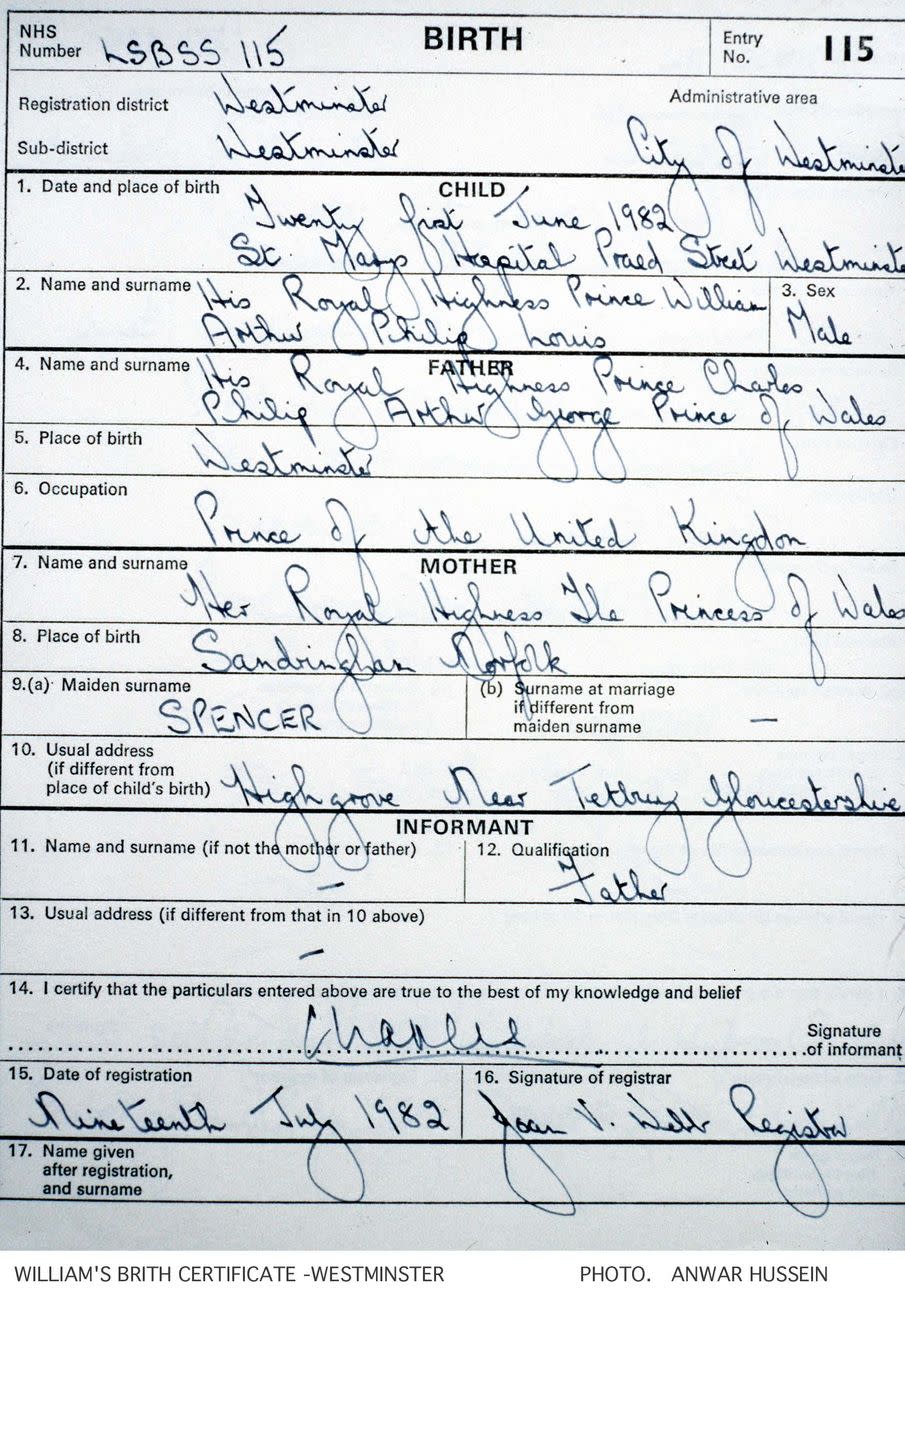 NHS Number LSBSS 115 BIRTH Entry No. 115
Registration district Westminster Administrative area
Sub-district Westminster City of Westminster
1. Date and place of birth CHILD
Twenty first June 1982
St. Marys Hospital Praed Street Westminster
2. Name and surname His Royal Highness Prince William
Arthur Philip Louis
3. Sex
Male
4. Name and surname FATHER
His Royal Highness Prince Charles
Philip Arthur George Prince of Wales
5. Place of birth
Westminster
6. Occupation
Prince of the United Kingdom
7. Name and surname MOTHER
Her Royal Highness The Princess of Wales
8. Place of birth
Sandringham Norfolk
9.(a) Maiden surname
SPENCER
(b) Surname at marriage
if different from
maiden surname —
10. Usual address
(if different from
place of child's birth) Highgrove Near Tetbury Gloucestershire
INFORMANT
11. Name and surname (if not the mother or father)
—
12. Qualification
Father
13. Usual address (if different from that in 10 above)
—
14. I certify that the particulars entered above are true to the best of my knowledge and belief
Charles
Signature
of informant
15. Date of registration
Nineteenth July 1982
16. Signature of registrar
Joan V. Webb Registrar
17. Name given
after registration,
and surname
WILLIAM'S BRITH CERTIFICATE -WESTMINSTER PHOTO. ANWAR HUSSEIN